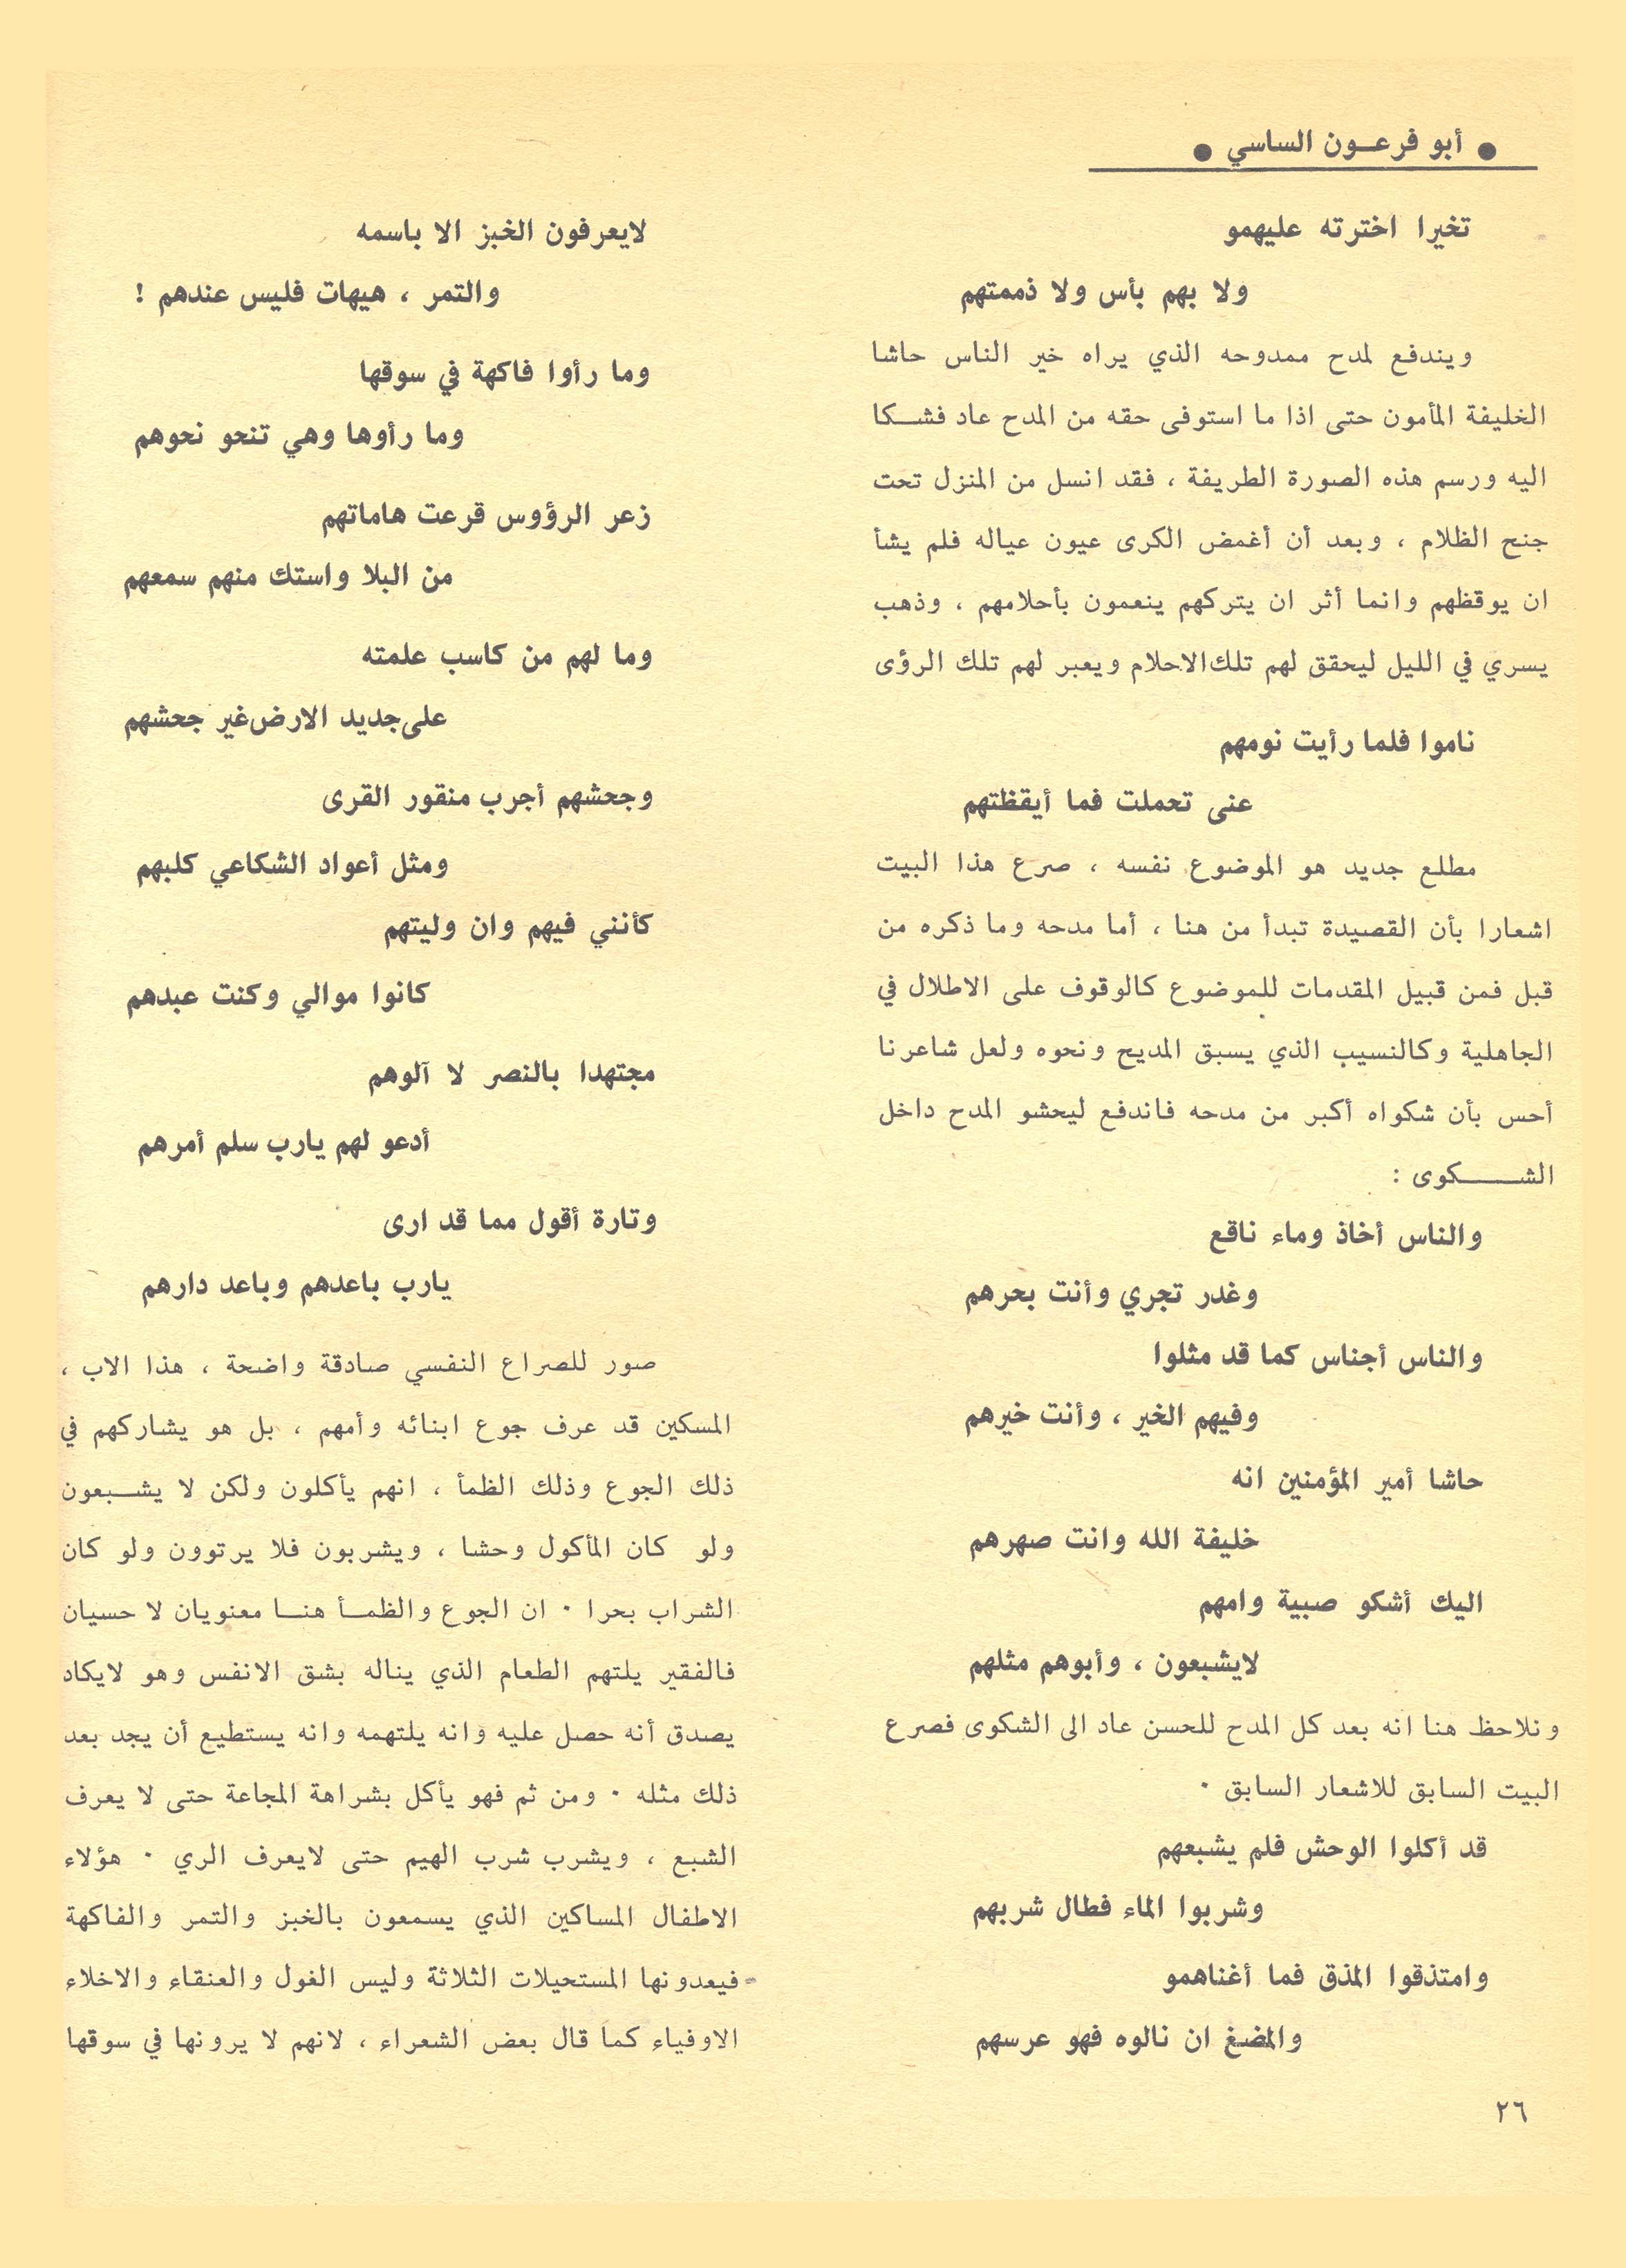 ● أبو فرعـون الساسي ●
تخيرا اخترته عليهمو
ولا بهم بأس ولا ذممتهم
ويندفع لمدح ممدوحه الذي يراه خير الناس حاشا
الخليفة المأمون حتى اذا ما استوفى حقه من المدح عاد فشـكا
اليه ورسم هذه الصورة الطريفة ، فقد انسل من المنزل تحت
جنح الظلام ، وبعد أن أغمض الكرى عيون عياله فلم يشأ
ان يوقظهم وانما أثر ان يتركهم ينعمون بأحلامهم ، وذهب
يسري في الليل ليحقق لهم تلك الاحلام ويعبر لهم تلك الرؤى
ناموا فلما رأيت نومهم
عنى تحملت فما أيقظتهم
مطلع جديد هو الموضوع نفسه ، صرع هذا البيت
اشعارا بأن القصيدة تبدأ من هنا ، أما مدحه وما ذكره من
قبل فمن قبيل المقدمات للموضوع كالوقوف على الاطلال في
الجاهلية وكالنسيب الذي يسبق المديح ونحوه ولعل شاعرنا
أحس بأن شكواه أكبر من مدحه فاندفع ليحشو المدح داخل
الشـــكوى :
والناس أخاذ وماء ناقع
وغدر تجري وأنت بحرهم
والناس أجناس كما قد مثلوا
وفيهم الخير ، وأنت خيرهم
حاشا أمير المؤمنين انه
خليفة الله وانت صهرهم
اليك أشكو صبية وامهم
لايشبعون ، وأبوهم مثلهم
ونلاحظ هنا انه بعد كل المدح للحسن عاد الى الشكوى فصرع
البيت السابق للاشعار السابق ٠
قد أكلوا الوحش فلم يشبعهم
وشربوا الماء فطال شربهم
وامتذقوا المذق فما أغناهمو
والمضغ ان نالوه فهو عرسهم
لايعرفون الخبز الا باسمه
والتمر ، هيهات فليس عندهم !
وما رأوا فاكهة في سوقها
وما رأوها وهي تنحو نحوهم
زعر الرؤوس قرعت هاماتهم
من البلا واستك منهم سمعهم
وما لهم من كاسب علمته
على جديد الارض غير جحشهم
وجحشهم أجرب منقور القرى
ومثل أعواد الشكاعي كلبهم
كأنني فيهم وان وليتهم
كانوا موالي وكنت عبدهم
مجتهدا بالنصر لا آلوهم
أدعو لهم يارب سلم أمرهم
وتارة أقول مما قد ارى
يارب باعدهم وباعد دارهم
صور للصراع النفسي صادقة واضحة ، هذا الاب ،
المسكين قد عرف جوع ابنائه وأمهم ، بل هو يشاركهم في
ذلك الجوع وذلك الظمأ ، انهم يأكلون ولكن لا يشـبعون
ولو كان المأكول وحشا ، ويشربون فلا يرتوون ولو كان
الشراب بحرا ٠ ان الجوع والظمـأ هنـا معنويان لا حسيان
فالفقير يلتهم الطعام الذي يناله بشق الانفس وهو لايكاد
يصدق أنه حصل عليه وانه يلتهمه وانه يستطيع أن يجد بعد
ذلك مثله ٠ ومن ثم فهو يأكل بشراهة المجاعة حتى لا يعرف
الشبع ، ويشرب شرب الهيم حتى لايعرف الري ٠ هؤلاء
الاطفال المساكين الذي يسمعون بالخبز والتمر والفاكهة
فيعدونها المستحيلات الثلاثة وليس الغول والعنقاء والاخلاء
الاوفياء كما قال بعض الشعراء ، لانهم لا يرونها في سوقها
٢٦